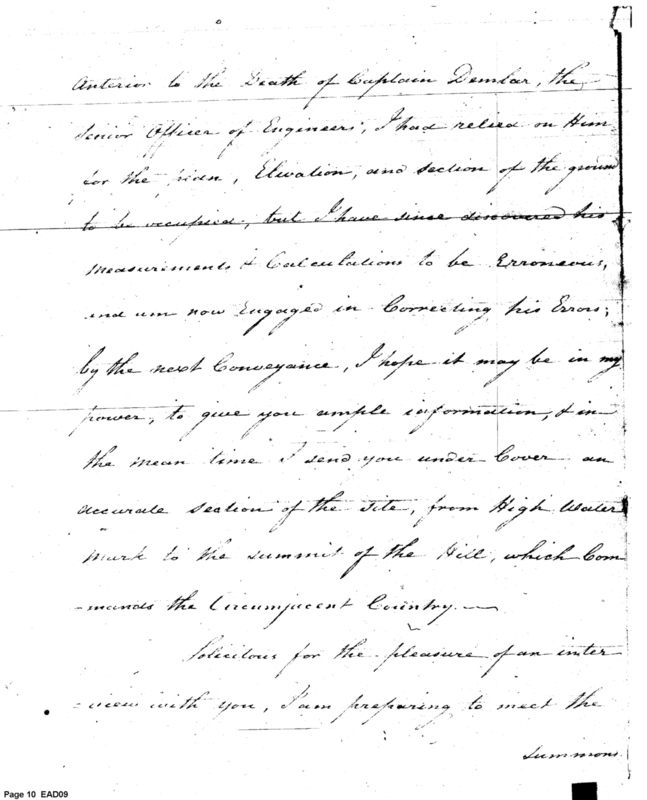 Anterior to the Death of Captain Demlar, the
Senior Officer of Engineers, I had relied on Him
for the plan, Elevation, and section of the ground
to be occupied, but I have since discovered his
measurements & Calculations to be Erroneous,
and am now Engaged in Correcting his Errors;
by the next Conveyance, I hope it may be in my
power, to give you ample information, & in
the mean time I send you under Cover an
accurate section of the site, from High Water
mark to the summit of the Hill, which Com
-mands the Circumjacent Country.
Solicitous for the pleasure of an inter
-view with you, I am preparing to meet the
summons
Page 10 EAD09